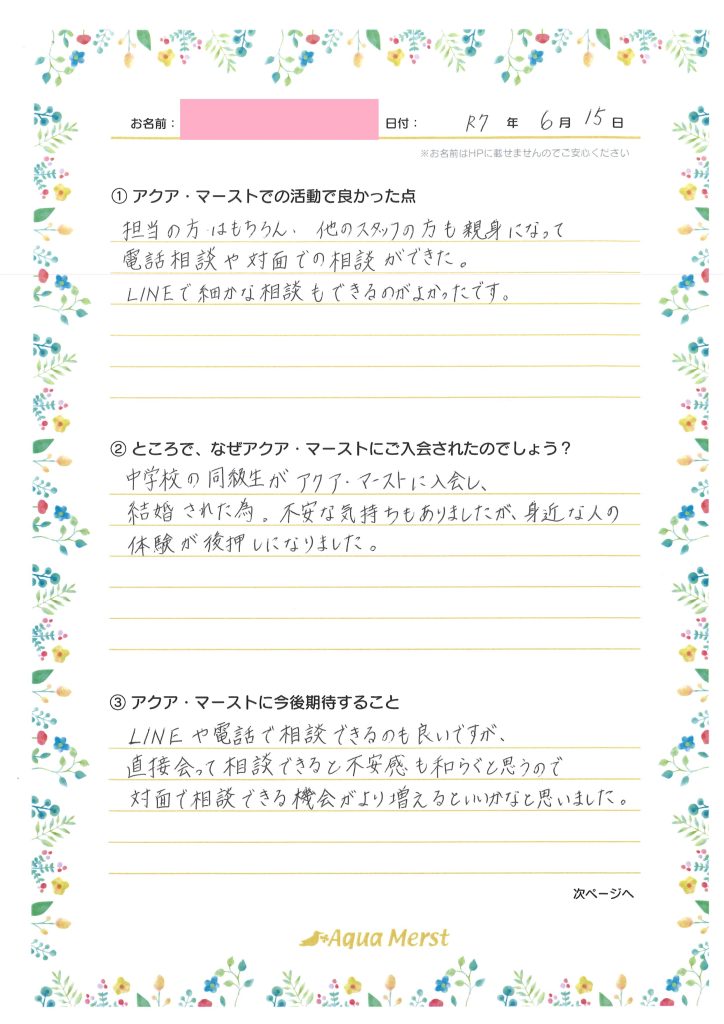 お名前： 日付： R7 年 6 月 15 日
※お名前はHPに載せませんのでご安心ください
① アクア・マーストでの活動で良かった点
担当の方はもちろん、他のスタッフの方も親身になって
電話相談や対面での相談ができた。
LINEで細かな相談もできるのがよかったです。
② ところで、なぜアクア・マーストにご入会されたのでしょう？
中学校の同級生がアクア・マーストに入会し、
結婚された為。不安な気持ちもありましたが、身近な人の
体験が後押しになりました。
③ アクア・マーストに今後期待すること
LINEや電話で相談できるのも良いですが、
直接会って相談できると不安感も和らぐと思うので
対面で相談できる機会がより増えるといいかなと思いました。
次ページへ
Aqua Merst